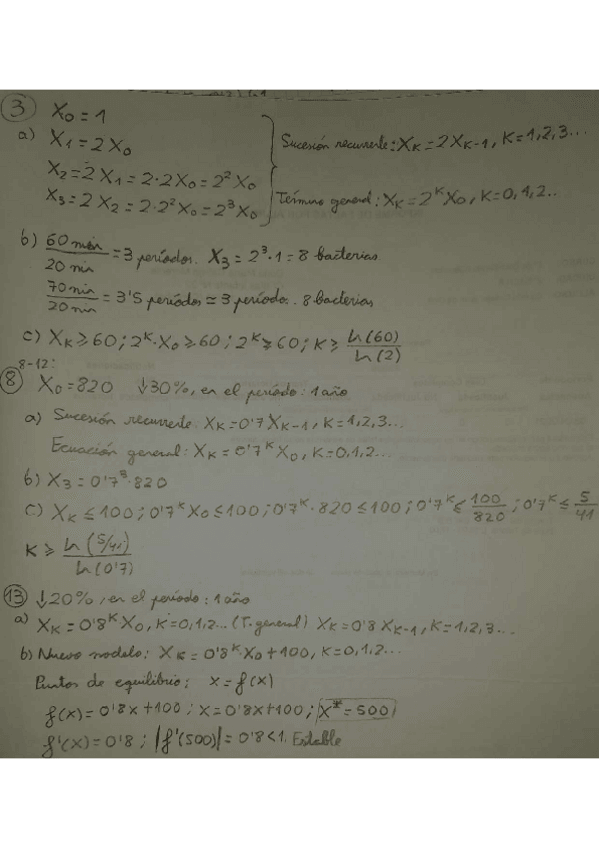 ③ X₀ = 1
a) X₁ = 2X₀
X₂ = 2X₁ = 2·2X₀ = 2²X₀
X₃ = 2X₂ = 2·2²X₀ = 2³X₀
Sucesión recurrente: X_K = 2X_{K-1}, K=1,2,3...
Término general: X_K = 2^K X₀, K=0,1,2..
b) 60 min / 20 min = 3 períodos. X₃ = 2³·1 = 8 bacterias
70 min / 20 min = 3'5 períodos ≃ 3 período.. 8 bacterias
c) X_K ≥ 60; 2^K·X₀ ≥ 60; 2^K ≥ 60; K ≥ ln(60) / ln(2)
8-12:
⑧ X₀ = 820 ↓30%, en el período: 1 año
a) Sucesión recurrente: X_K = 0'7X_{K-1}, K=1,2,3...
Ecuación general: X_K = 0'7^K X₀, K=0,1,2...
b) X₃ = 0'7³·820
c) X_K ≤ 100; 0'7^K X₀ ≤ 100; 0'7^K·820 ≤ 100; 0'7^K ≤ 100/820; 0'7^K ≤ 5/41
K ≥ ln(5/41) / ln(0'7)
⑬ ↓20%, en el período: 1 año
a) X_K = 0'8^K X₀, K=0,1,2... (T. general) X_K = 0'8X_{K-1}, K=1,2,3...
b) Nuevo modelo: X_K = 0'8^K X₀ + 100, K=0,1,2...
Puntos de equilibrio: x = f(x)
f(x) = 0'8x+100; x = 0'8x+100; x* = 500
f'(x) = 0'8; |f'(500)| = 0'8 < 1. Estable